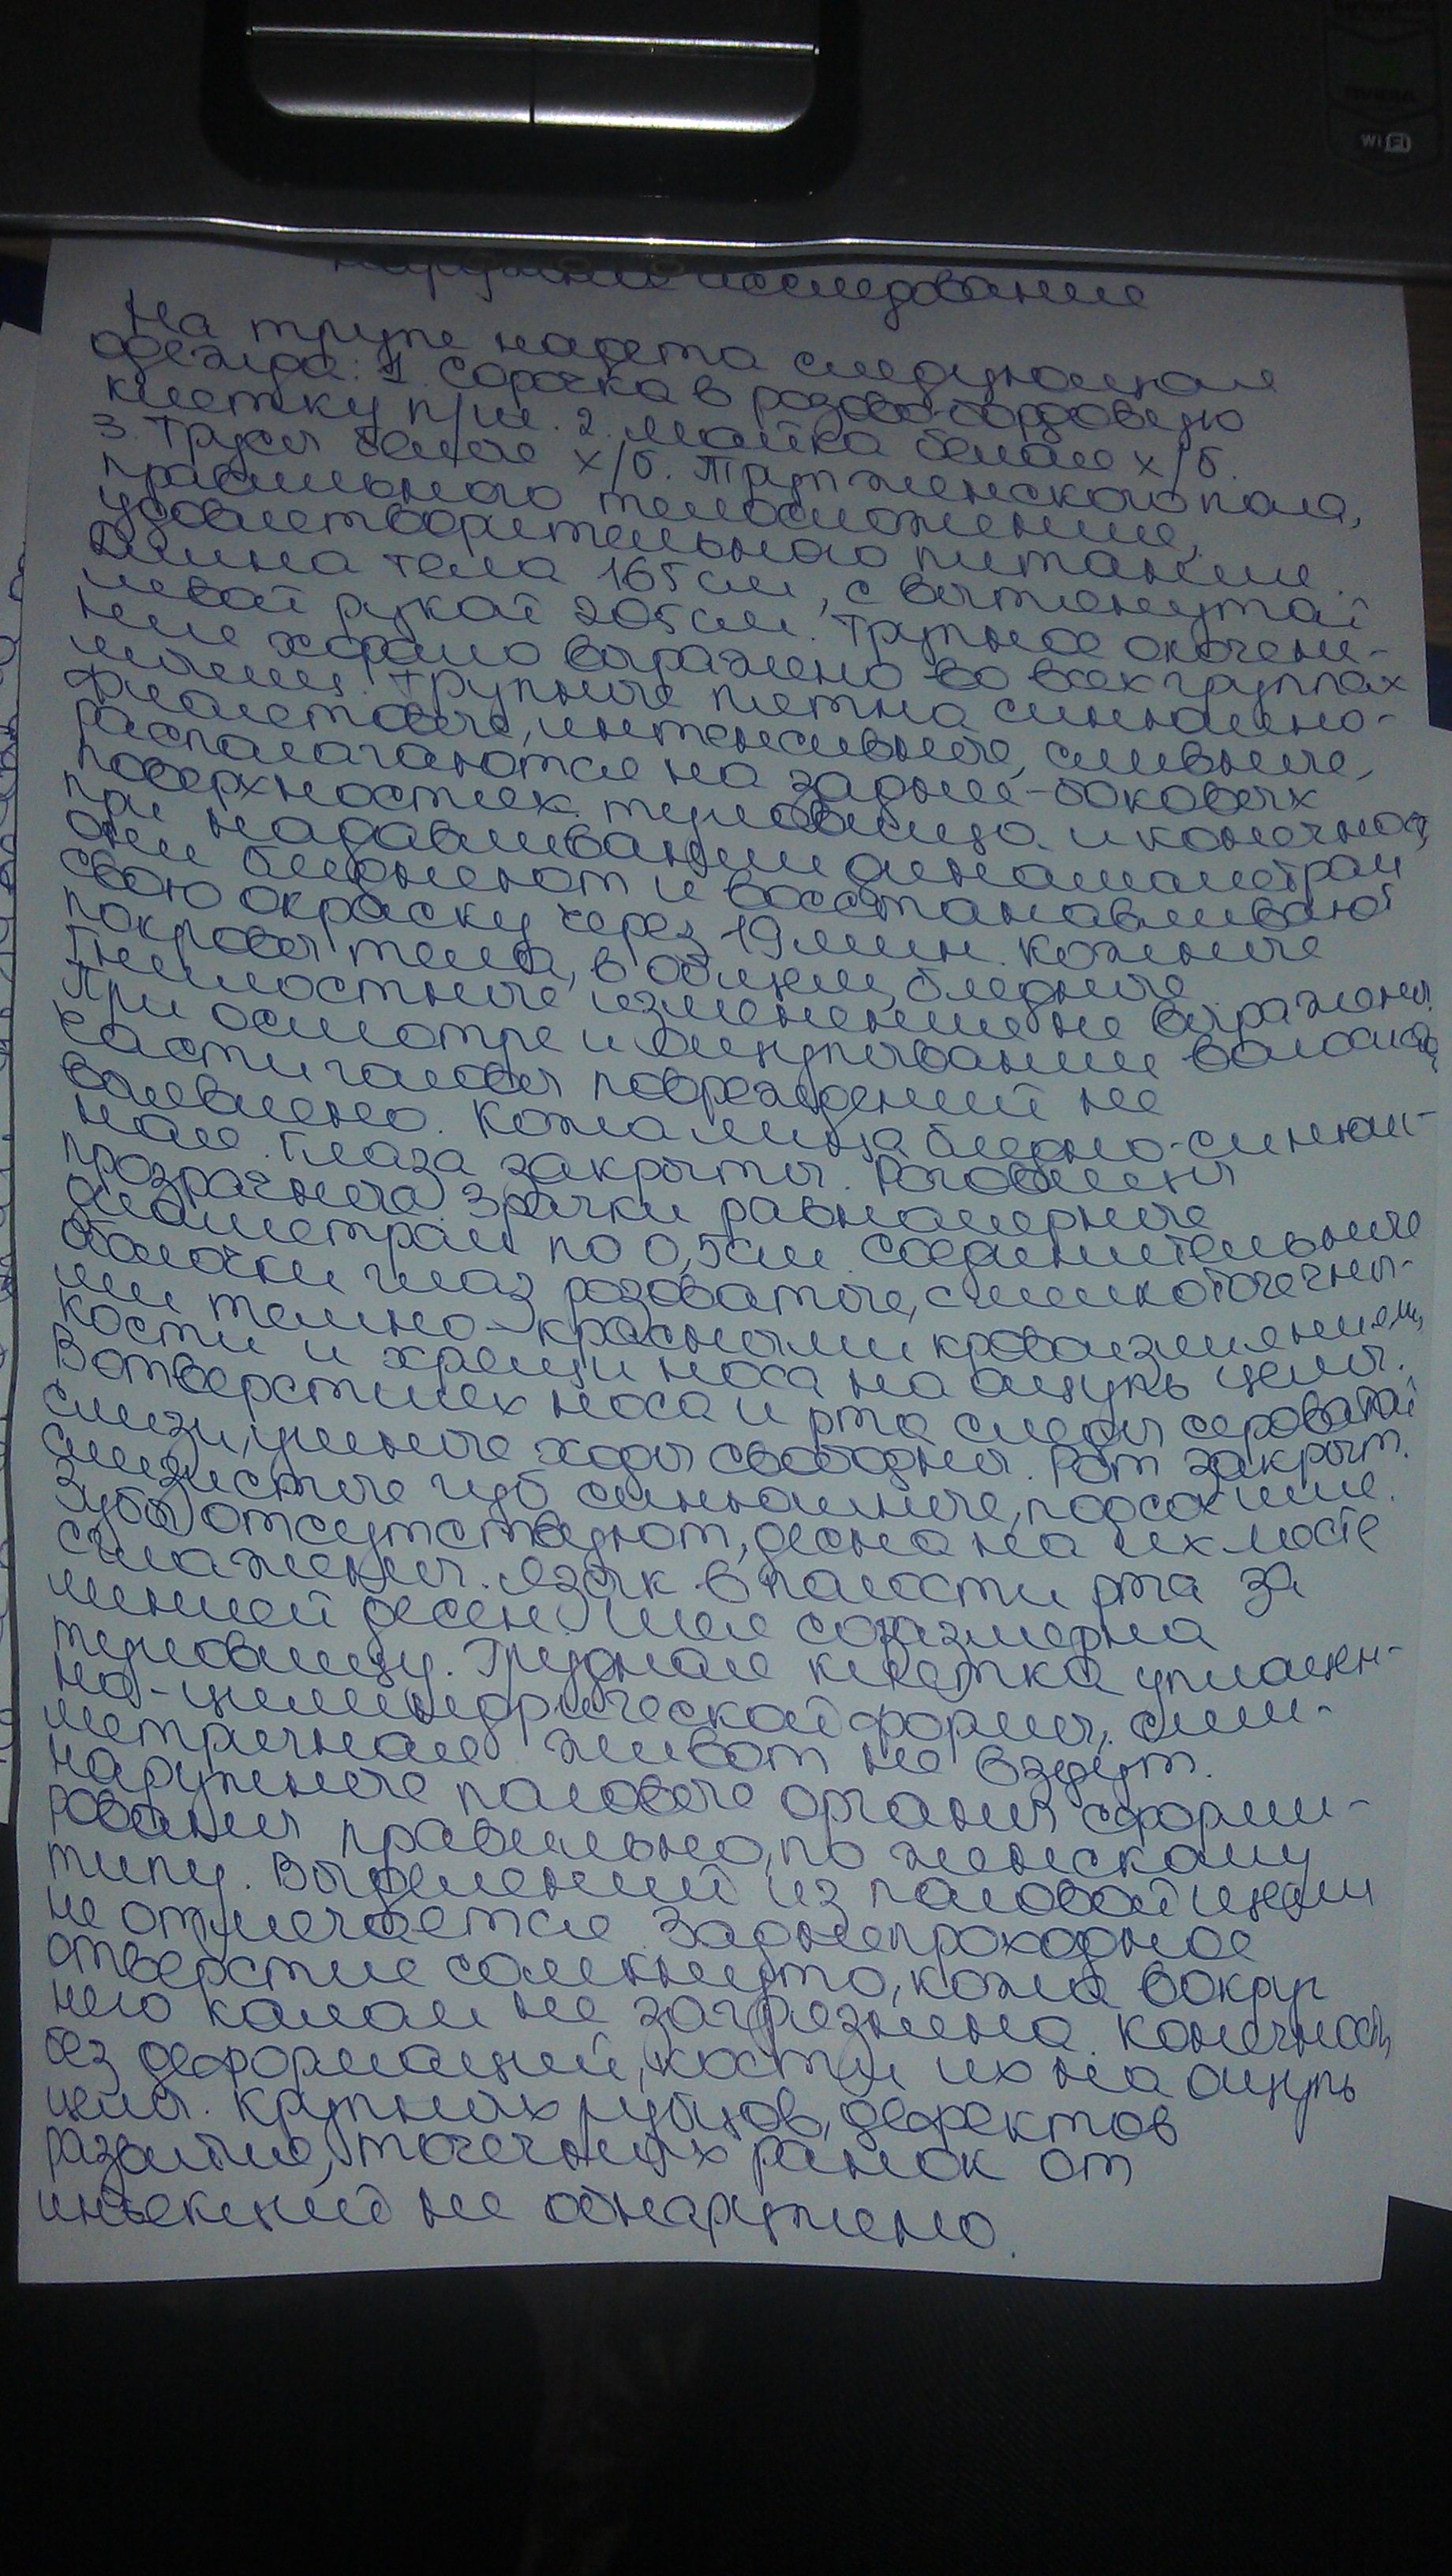 WiFi
Наружное исследование
На трупе надета следующая
одежда: 1. Сорочка в розово-бордовую
клетку п/ш. 2. Майка белая х/б.
3. Трусы белые х/б. Труп женского пола,
правильного телосложения,
удовлетворительного питания.
Длина тела 165 см, с вытянутой
левой рукой 205 см. Трупное окочене-
ние хорошо выражено во всех группах
мышц. Трупные пятна синюшно-
фиолетовые, интенсивные, сливные,
располагаются на задне-боковых
поверхностях туловища и конечност,
при надавливании динамометром
они бледнеют и восстанавливают
свою окраску через 19 мин. Кожные
покровы тела, в общем, бледные.
Гнилостные изменения не выражены.
При осмотре и ощупывании волосистой
части головы повреждений не
выявлено. Кожа лица бледно-синюш-
ная. Глаза закрыты. Роговицы
прозрачные. Зрачки равномерные
диаметром по 0,5 см. Соединительные
оболочки глаз розоватые, с мелкоточечны-
ми темно-красными кровоизлияниями,
кости и хрящи носа на ощупь целы.
В отверстиях носа и рта следы сероватой
слизи, ушные ходы свободны. Рот закрыт.
Слизистые губ синюшные, подсохшие.
Зубы отсутствуют, десна на их месте
сглажены. Язык в полости рта за
линией десен. Шея соразмерна
туловищу. Грудная клетка уплощен-
но-цилиндрической формы, сим-
метричная. Живот не вздут.
Наружные половые органы сформи-
рованы правильно, по женскому
типу. Выделений из половой щели
не отмечается. Заднепроходное
отверстие сомкнуто, кожа вокруг
него калом не загрязнена. Конечности
без деформаций, кости их на ощупь
целы. Крупных рубцов, дефектов
развития, точечных ранок от
инъекций не обнаружено.